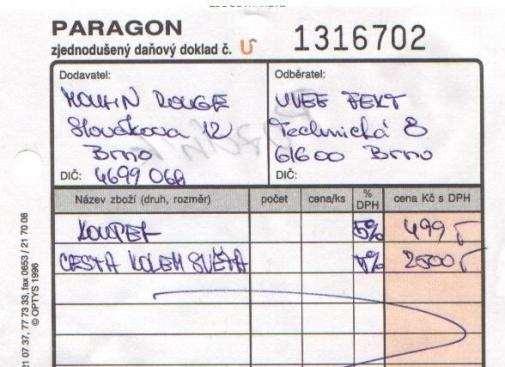 PARAGON
zjednodušený daňový doklad č. 1316702
Dodavatel: Odběratel:
MOULIN ROUGE UVEE FEKT
Slovákova 12 Technická 8
Brno 61600 Brno
DIČ: 4699 068 DIČ:
Název zboží (druh, rozměr) počet cena/ks % DPH cena Kč s DPH
KOUPEL 5% 499
CESTA KOLEM SVĚTA 2500
21 07 37, 77 73 33, fax 0653 / 21 70 08
© OPTYS 1996